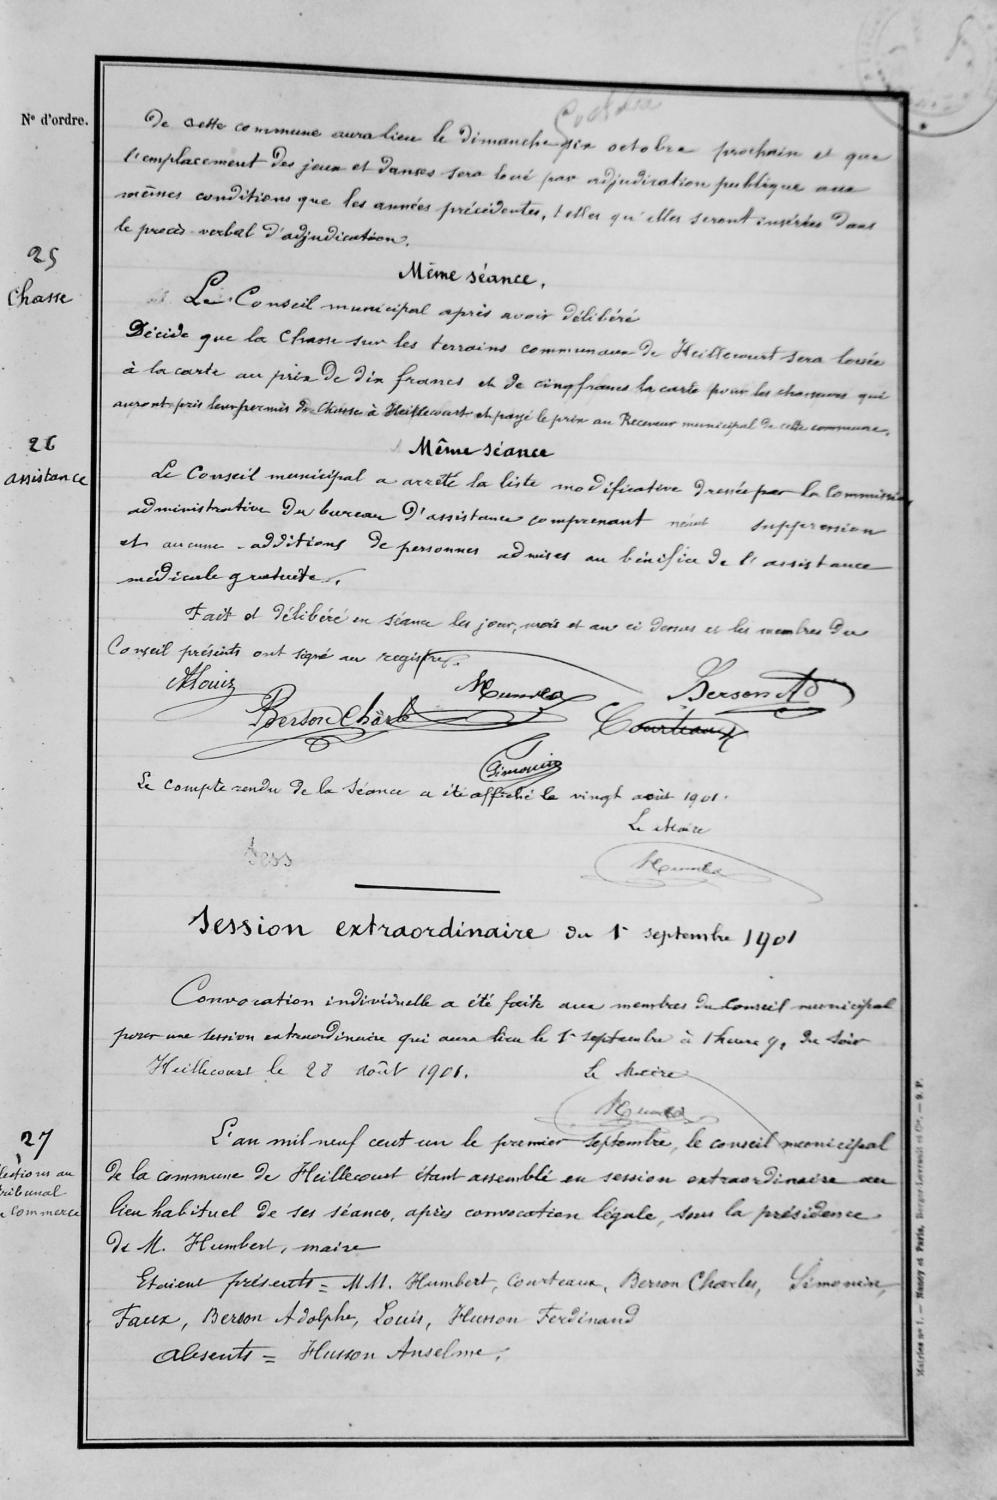 Nos d'ordre.
De cette commune aura lieu le dimanche six octobre prochain et que
l'emplacement des jeux et danses sera loué par adjudication publique aux
mêmes conditions que les années précédentes, telles qu'elles seront insérées dans
le procès-verbal d'adjudication.
25
Chasse
Même séance.
Le Conseil municipal après avoir délibéré
Décide que la Chasse sur les terrains communaux de Heillecourt sera louée
à la carte au prix de dix francs et de cinq francs la carte pour les chasseurs qui
auront pris leur permis de Chasse à Heillecourt et payé le prix au Receveur municipal de cette commune.
26
assistance
Même séance
Le Conseil municipal a arrêté la liste modificative dressée par la Commission
administrative du bureau d'assistance comprenant néant suppression
et aucune additions de personnes admises au bénéfice de l'assistance
médicale gratuite.
Fait et délibéré en séance les jour, mois et an ci dessus et les membres du
Conseil présents ont signé au registre.
Louis
Berson Charles
Humbert
Berson Ad
Courteaux
Simonin
Le compte rendu de la Séance a été affiché le vingt août 1901.
Le Maire
Humbert
Sess
Session extraordinaire du 1r septembre 1901
Convocation individuelle a été faite aux membres du Conseil municipal
pour une session extraordinaire qui aura lieu le 1r septembre à 1 heure 1/2 du soir
Heillecourt le 28 août 1901. Le Maire
Humbert
27
Elections au
tribunal
de Commerce
L'an mil neuf cent un le premier septembre, le conseil municipal
de la commune de Heillecourt étant assemblé en session extraordinaire au
lieu habituel de ses séances, après convocation légale, sous la présidence
de M. Humbert, maire
Etaient présents = MM. Humbert, Courteaux, Berson Charles, Simonin,
Faux, Berson Adolphe, Louis, Husson Ferdinand
absents = Husson Anselme.
Mairies no 1. — Nancy et Paris, Berger-Levrault et Cie. — 9. P.